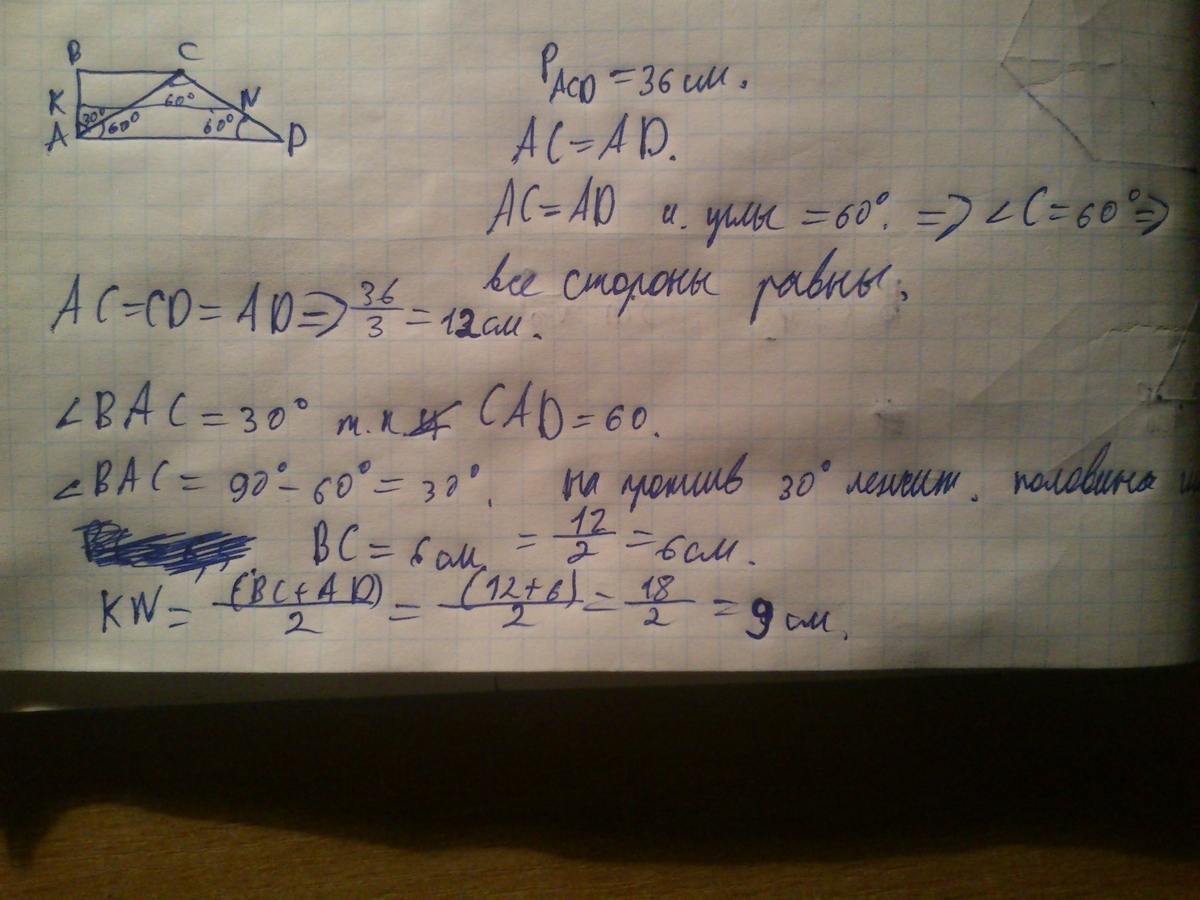 B C
K 30° 60° N
A 60° 60° D
P ACD = 36 см.
AC = AD.
AC = AD и. углы = 60°. => ∠C = 60° =>
все стороны равны.
AC = CD = AD => 36/3 = 12 см.
∠BAC = 30° т.к. CAD = 60.
∠BAC = 90° - 60° = 30°. на против 30° лежит. половина
BC = 6 см = 12/2 = 6 см.
KN = (BC + AD)/2 = (12+6)/2 = 18/2 = 9 см.